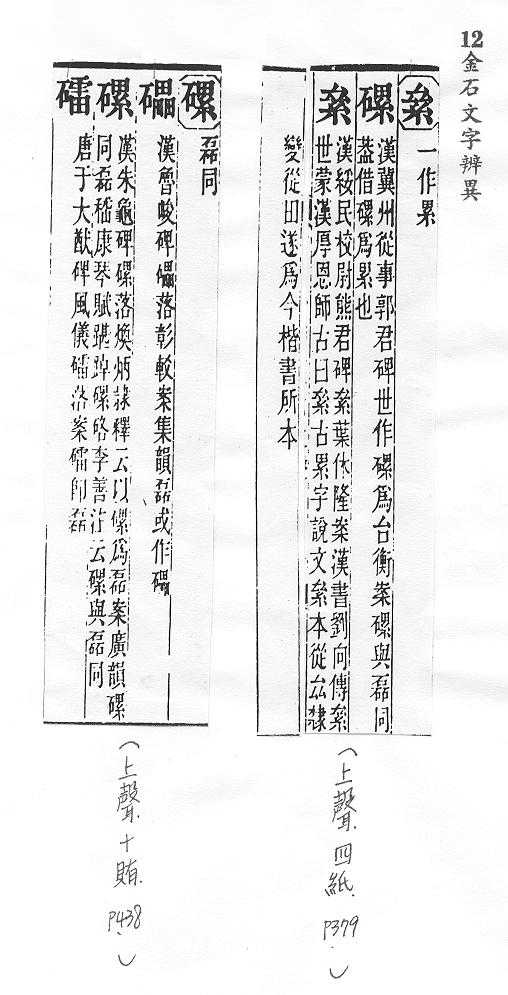 12金石文字辨異
絫 一作累
磥 漢冀州從事郭君碑世作磥爲台衡案磥與磊同
葢借磥爲累也
絫 漢綏民校尉熊君碑絫葉休隆案漢書劉向傳絫
世蒙漢厚恩師古曰絫古累字說文絫本從厽隸
變從田遂爲今楷書所本
(上聲四紙 P379)
磥 磊同
礧 漢魯峻碑礧落彰較案集韻磊或作礧
磥 漢朱龜碑磥落煥炳隸釋云以磥爲磊案廣韻磥
同磊嵇康琴賦踸踔磥硌李善注云磥與磊同
礌 唐于大猷碑風儀礌落案礌卽磊
(上聲十賄 P438)